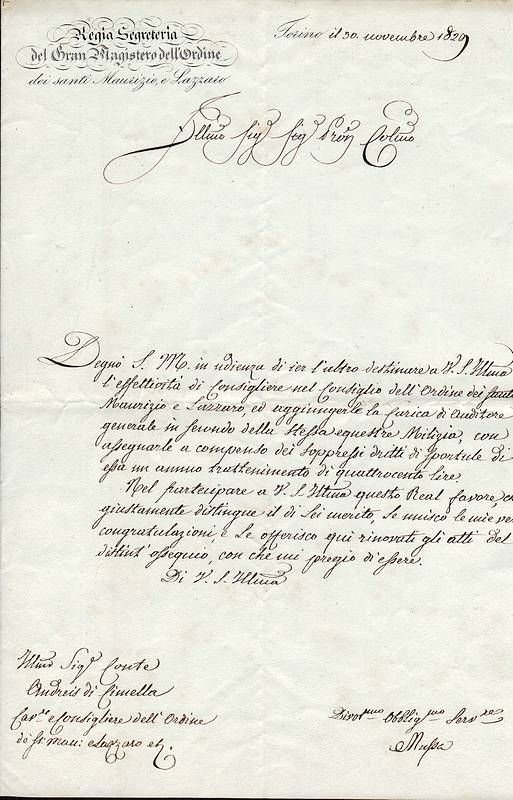 Regia Segreteria
del Gran Magistero dell'Ordine
dei santi Maurizio, e Lazzaro
Torino il 30. novembre 1829
Illmo Sig Sig Pron Colmo
Degnò S. M. in udienza di ier l'altro destinare a V. S. Illma
l'effettività di Consigliere nel Consiglio dell'Ordine dei santi
Maurizio e Lazzaro, ed aggiungerle la carica di Auditore
generale in secondo della stessa equestre Milizia, con
assegnarle a compenso dei soppressi dritti di sportule di
essa un annuo trattenimento di quattrocento lire.
Nel partecipare a V. S. Illma questo Real favore, c
giustamente distingue il di Lei merito, Le unisco le mie ve
congratulazioni e Le offerisco qui rinovati gli atti del
distint' ossequio, con che mi pregio di essere.
Di V. S. Illma
Illmo Sigr Conte
Andreis di Cimella
Cavre e Consigliere dell'Ordine
de' ss. Mau: e Lazzaro
Divotmo Obbligmo Servre
Mussa